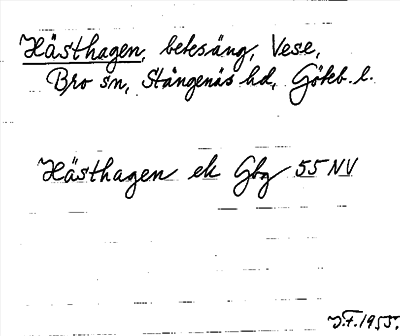 Hästhagen, betesäng, Vese,
Bro sn, Stångenäs hd, Göteb. l.
Hästhagen ek Gbg 55 NV
J.F. 1955.